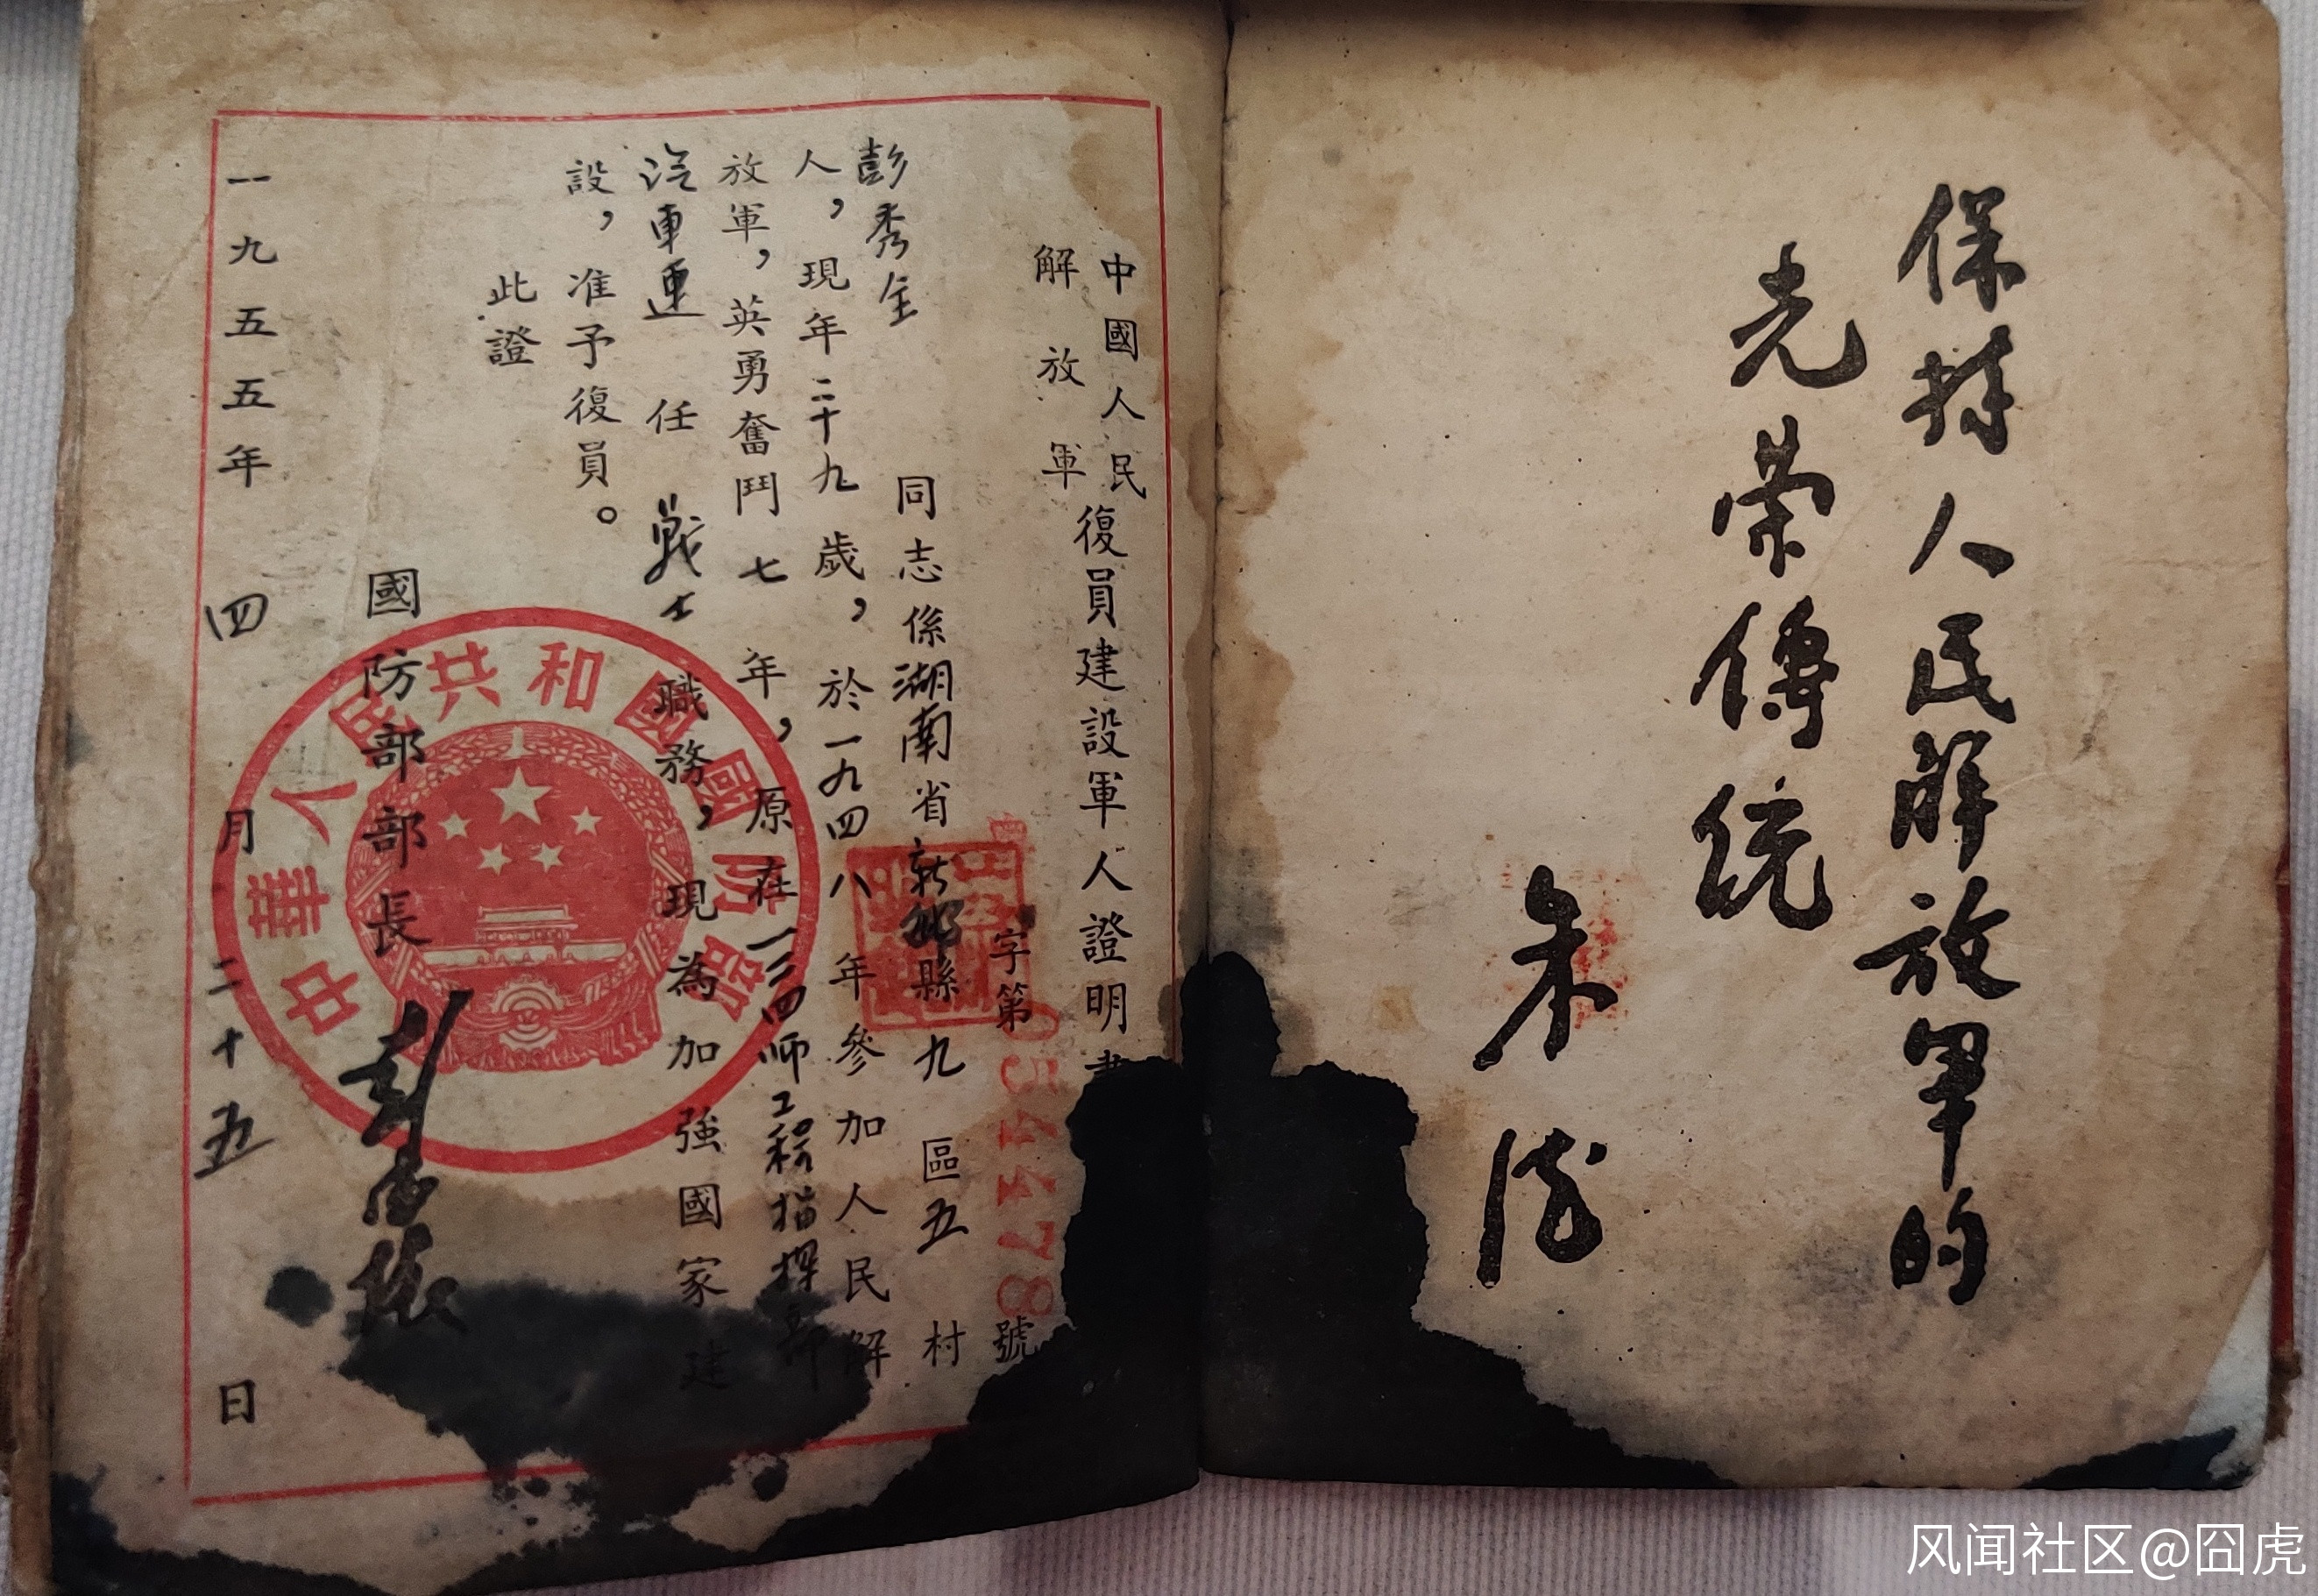 保持人民解放軍的
光榮傳統
朱德
中國人民
解放軍
復員建設軍人證明書
字第0544478號
彭秀全 同志係湖南省新邵縣九區五村
人，現年二十九歲，於一九四八年參加人民解
放軍，英勇奮鬥七年，原在一三四师工程指揮部
汽車連 任 戰士 職務，現為加強國家建
設，准予復員。
此證
國防部部長 彭德懷
一九五五年四月二十五日
中華人民共和國國防部
风闻社区@囧虎